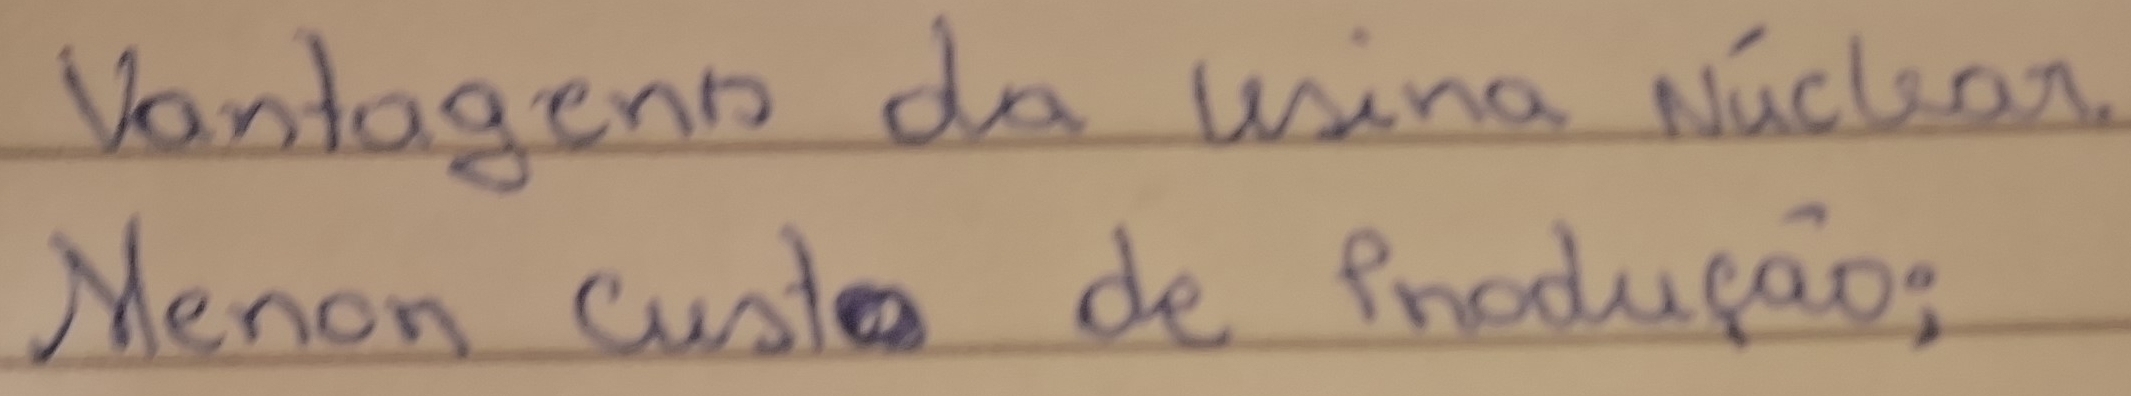 Vantagens da usina Núclear.
Menor custo de Produção;